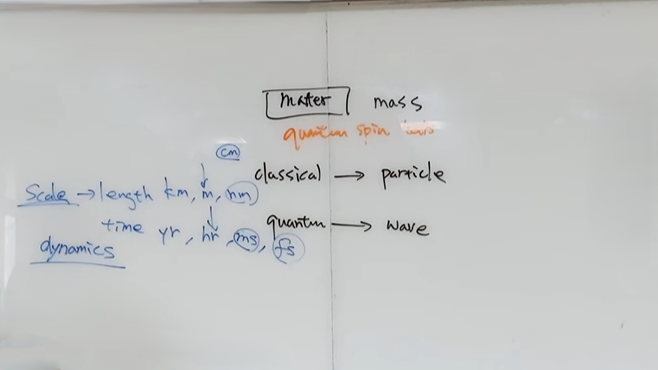 mater mass
quantum spin
cm
classical → particle
Scale → length km, m, nm
quantum → wave
time yr, hr, ms, fs
dynamics